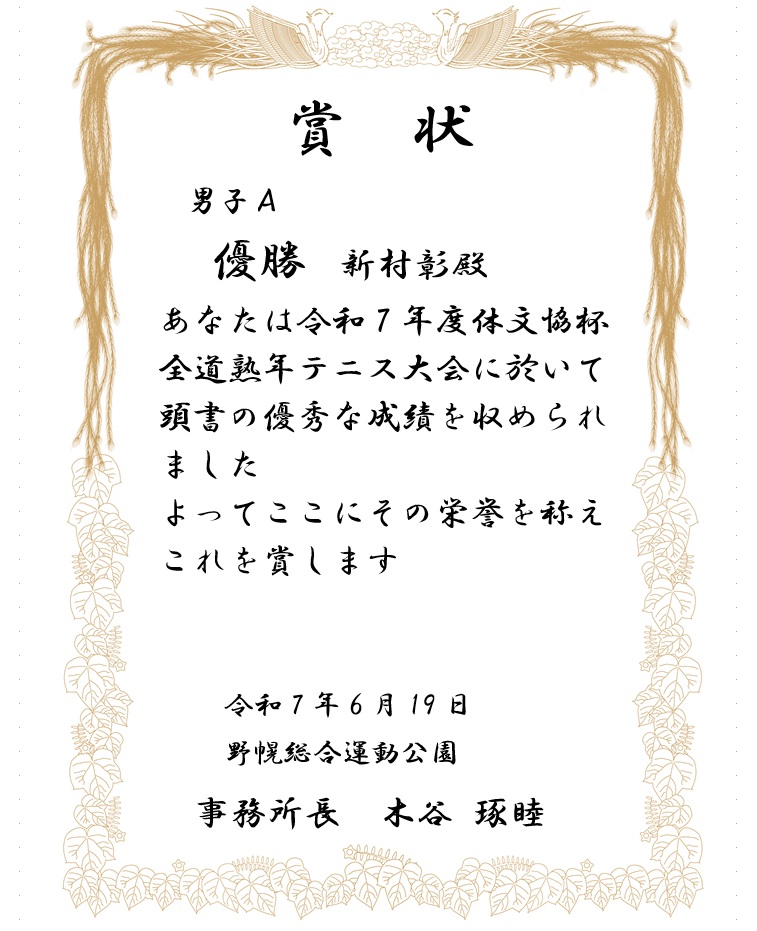 賞　状
男子A
優勝　新村彰殿
あなたは令和7年度体文協杯
全道熟年テニス大会に於いて
頭書の優秀な成績を収められ
ました
よってここにその栄誉を称え
これを賞します
令和7年6月19日
野幌総合運動公園
事務所長　木谷 琢睦